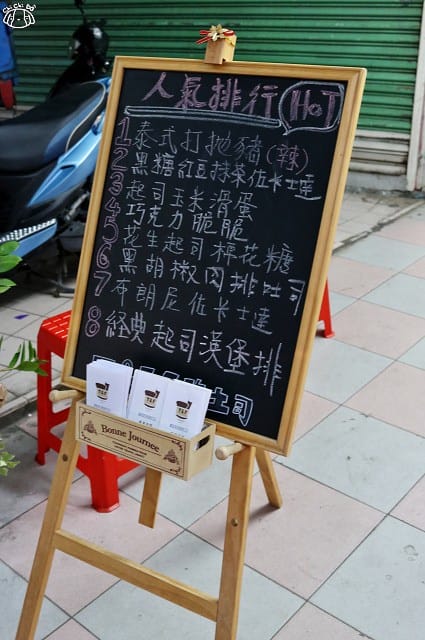 人氣排行 HOT
1 泰式打拋豬(辣)
2 黑糖紅豆抹茶佐卡士達
3 起司玉米滑蛋
4 巧克力脆脆
5 花生起司棉花糖
6 黑胡椒肉排吐司
7 布朗尼佐卡士達
8 経典起司漢堡排
土司
Bonne Journee